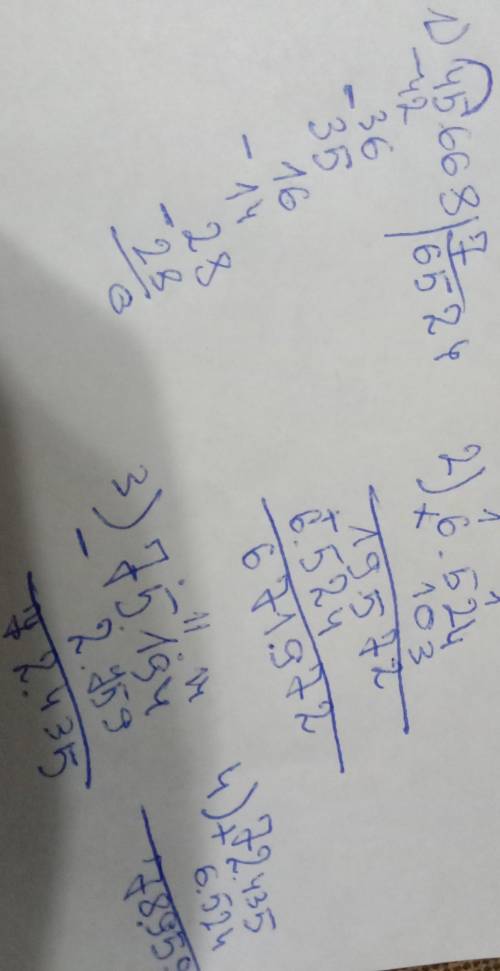 1) 45668 | 7
- 42 6524
- 36
35
- 16
14
- 28
28
0
2) 1 1
6.524
× 103
19572
+
6.524
671.972
3) 11 14
- 75.194
2.759
72.435
4) 72.435
+ 6.524
78959